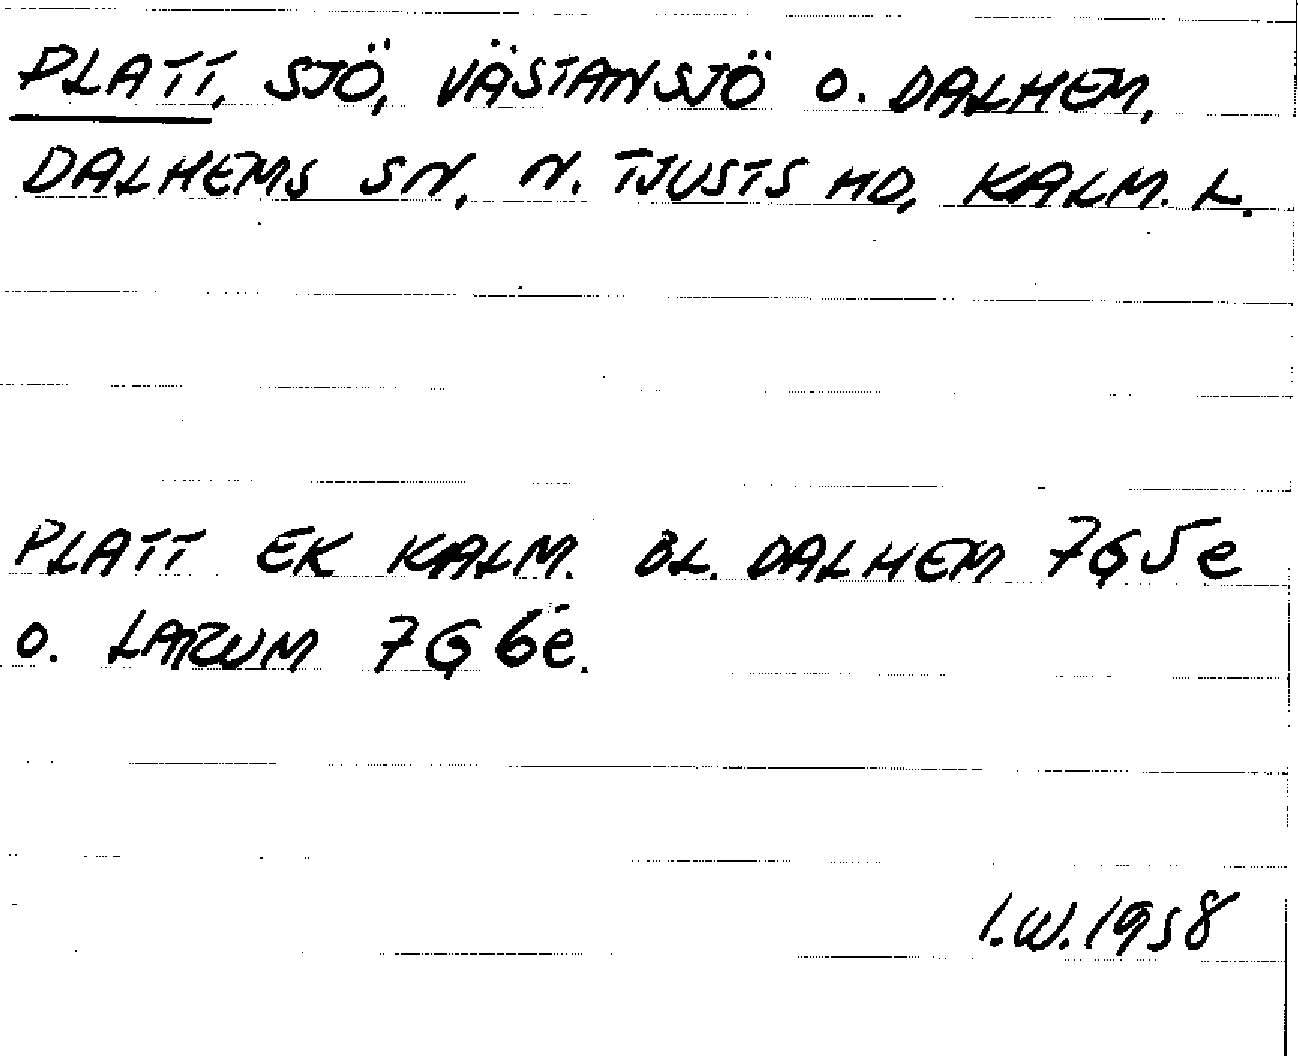 PLATT, SJÖ, VÄSTANSJÖ O. DALHEM,
DALHEMS SN, N. TJUSTS HD, KALM. L.
PLATT EK KALM. BL. DALHEM 7G5e
O. LARUM 7G6e.
I.W.1958